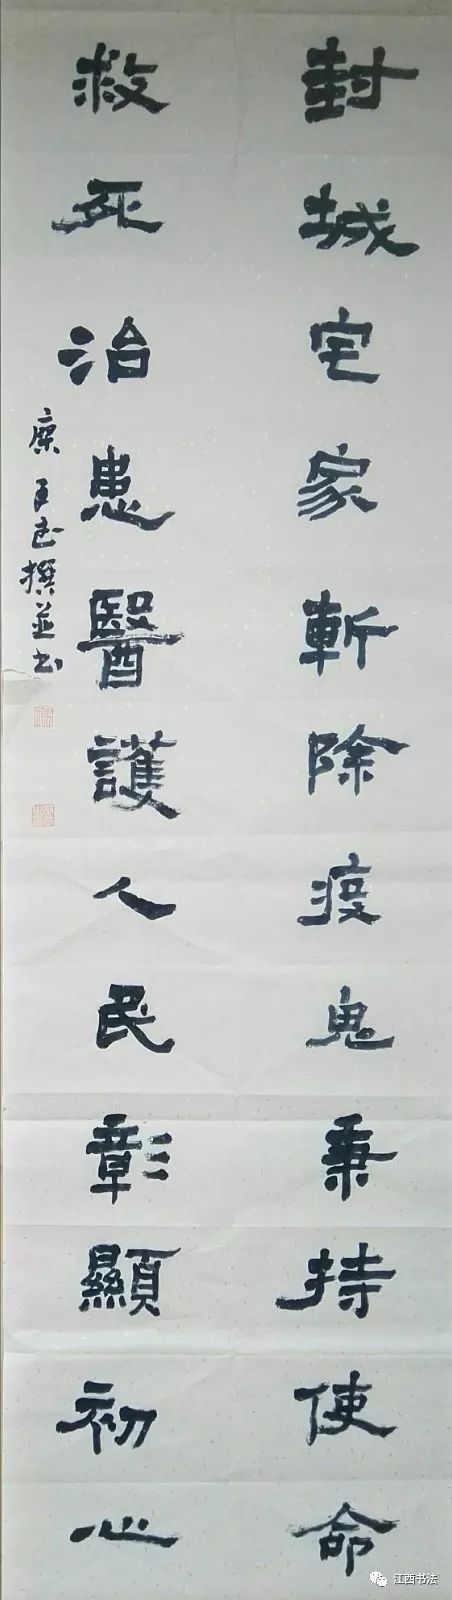 封城宅家斬除疫鬼秉持使命
救死治患醫護人民彰顯初心
撰並书
江西书法